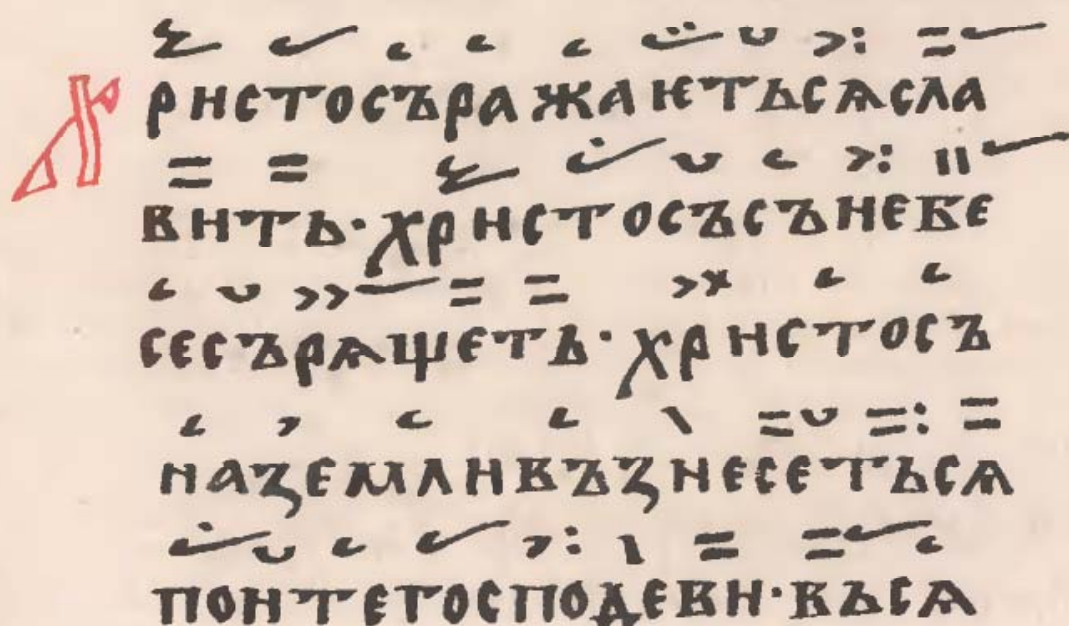 Христосъражаѥтьсѧсла
вить·христосъсънебе
сесърѧщеть·христосъ
наꙁемливъꙁнесетьсѧ
поитегосподеви·вьсѧ